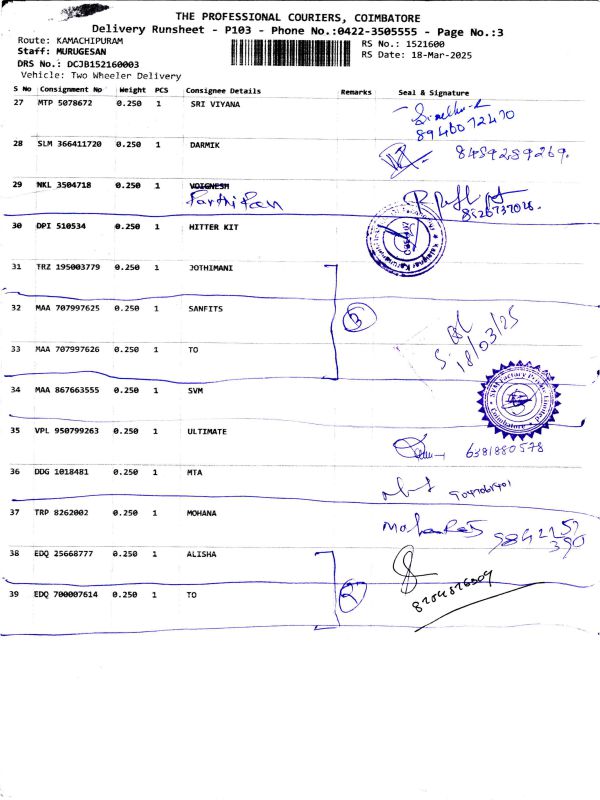 THE PROFESSIONAL COURIERS, COIMBATORE
Delivery Runsheet - P103 - Phone No.:0422-3505555 - Page No.:3
Route: KAMACHIPURAM RS No.: 1521600
Staff: MURUGESAN RS Date: 18-Mar-2025
DRS No.: DCJB152160003
Vehicle: Two Wheeler Delivery
S No Consignment No Weight PCS Consignee Details Remarks Seal & Signature
27 MTP 5078672 0.250 1 SRI VIYANA
8940072470
28 SLM 366411720 0.250 1 DARMIK 8459259269.
29 NKL 3504718 0.250 1 VOIGNESH
Parthipan
8526737026.
30 DPI 510534 0.250 1 HITTER KIT
31 TRZ 195003779 0.250 1 JOTHIMANI
32 MAA 707997625 0.250 1 SANFITS 3
18/03/25
33 MAA 707997626 0.250 1 TO
34 MAA 867663555 0.250 1 SVM
SVM Factory Private Limited
Coimbatore
35 VPL 950799263 0.250 1 ULTIMATE
6381880578
36 DDG 1018481 0.250 1 MTA
37 TRP 8262002 0.250 1 MOHANA
38 EDQ 25668777 0.250 1 ALISHA
39 EDQ 700007614 0.250 1 TO 2